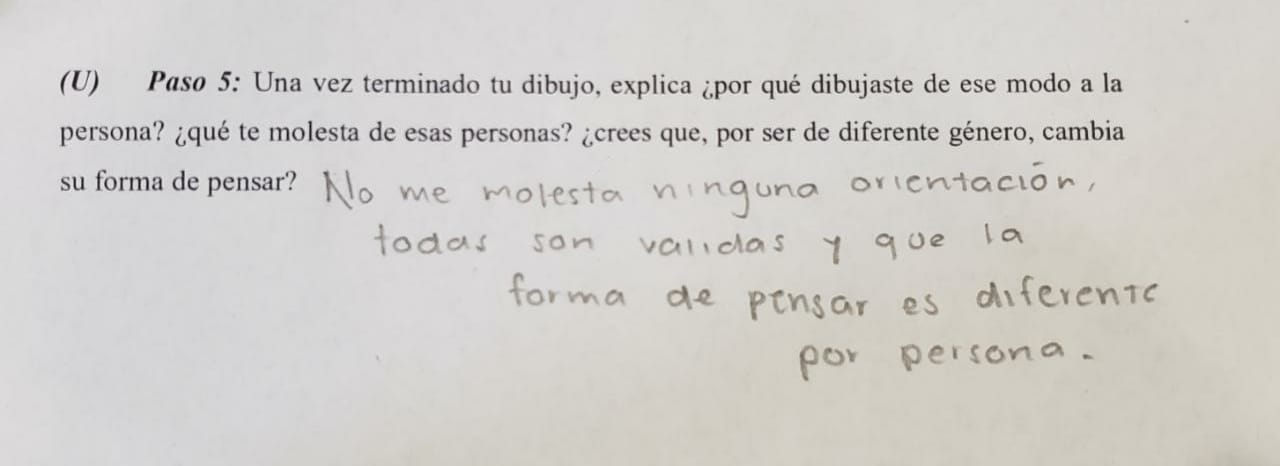 (U) Paso 5: Una vez terminado tu dibujo, explica ¿por qué dibujaste de ese modo a la
persona? ¿qué te molesta de esas personas? ¿crees que, por ser de diferente género, cambia
su forma de pensar? No me molesta ninguna orientación,
todas son validas y que la
forma de pensar es diferente
por persona.